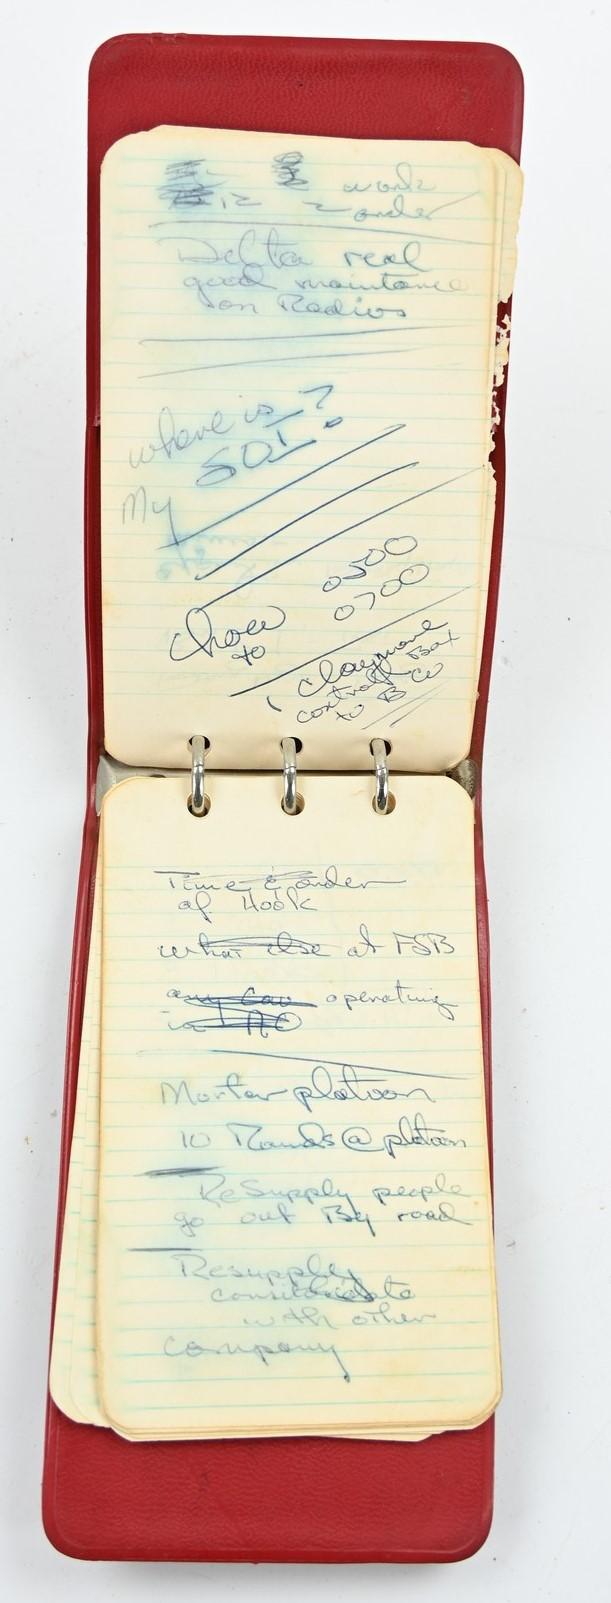 12 2 work
order
Delta real
good maintance
on Radios
where is ?
My SOI
Chow 0500
to 0700
Claymore
control Box
to B Co
Time & order
of Hook
what else at FSB
any Cav operating
in AO
Mortar platoon
10 Rounds @ platoon
ReSupply people
go out By road
Resupply
consolidate
with other
company